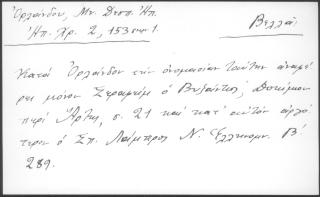 Ὀρλάνδου, Μν. Δεσπ. Ἠπ.
Ἠπ. Χρ. 2, 153 σημ 1.
Βελλάι
Κατά Ὀρλάνδον τήν ὀνομασίαν ταύτην ἀναφέ
ρει μόνον Σεραφείμ ὁ Βυζάντιος, Δοκίμιον
περί Ἄρτης, σ. 21 καί κατ' αὐτόν ἀργό
τερον ὁ Σπ. Λάμπρος Ν. Ἑλληνομν. Β'
289.